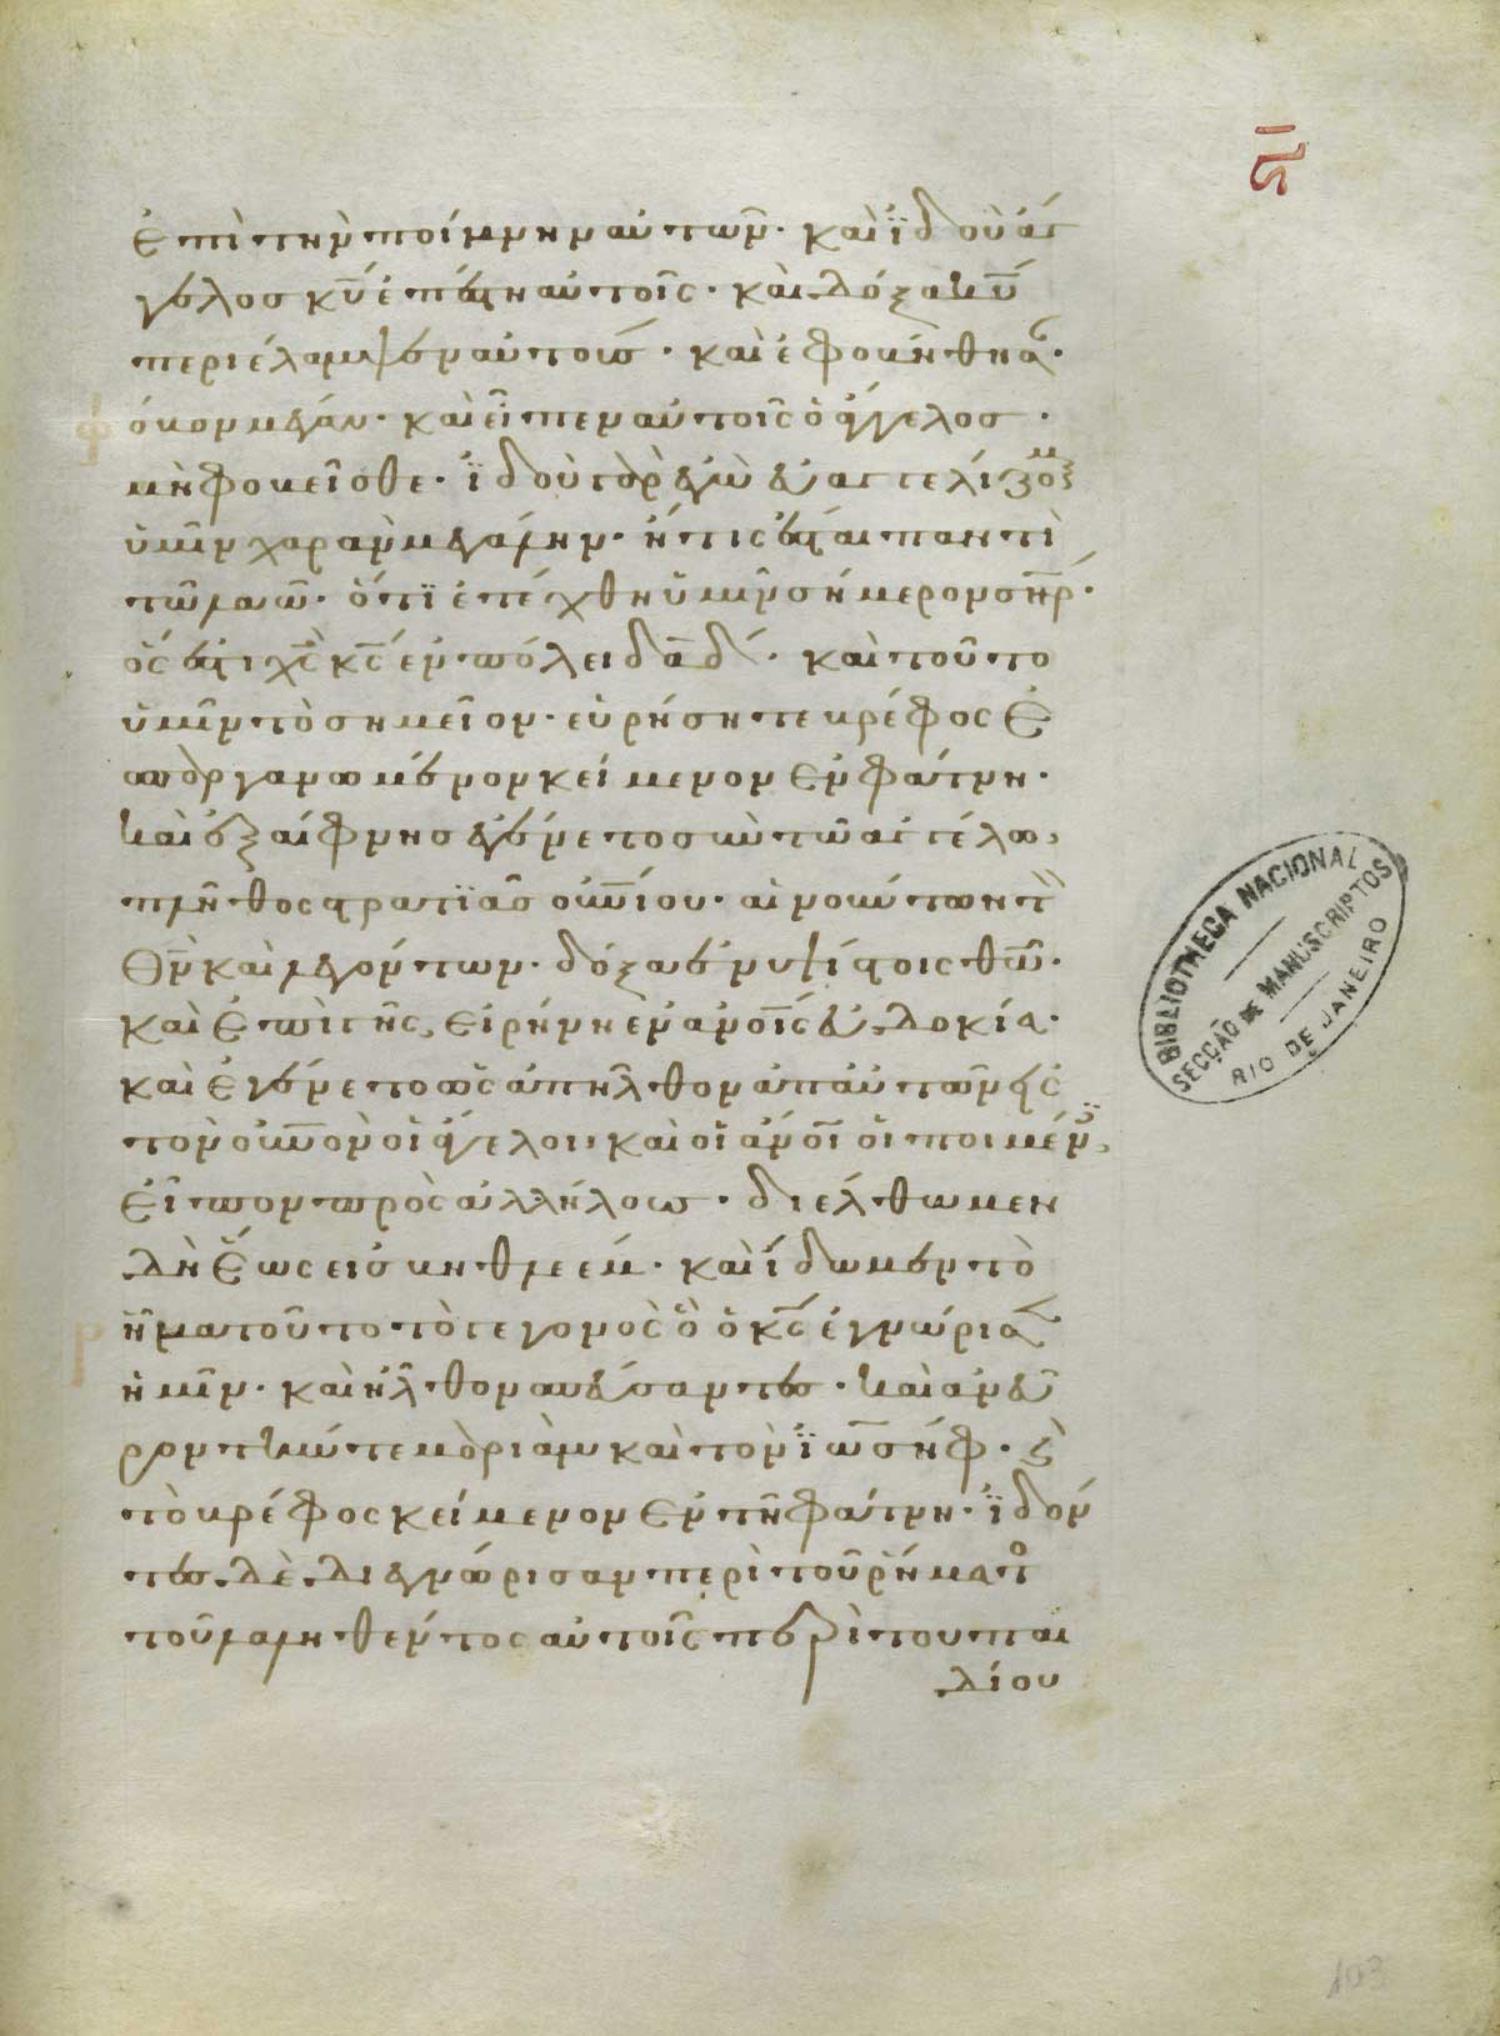 ἐπὶ τὴν ποίμνην αὐτῶν. καὶ ἰδοὺ ἄγ
γελος κ̅υ̅ ἐπέστη αὐτοῖς. καὶ δόξα κ̅υ̅
περιέλαμψεν αὐτούς. καὶ ἐφοβήθησαν
φόβον μέγαν. καὶ εἶπεν αὐτοῖς ὁ ἄγγελος.
μὴ φοβεῖσθε. ἰδοὺ γὰρ εὐαγγελίζομαι
ὑμῖν χαρὰν μεγάλην. ἥτις ἔσται παντὶ
τῶ λαῶ. ὅτι ἐτέχθη ὑμῖν σήμερον σ̅η̅ρ̅.
ὅς ἐστι χ̅ς̅ κ̅ς̅ ἐν πόλει δ̅α̅δ̅. καὶ τοῦτο
ὑμῖν τὸ σημεῖον. εὑρήσητε βρέφος ἐ
σπαργανωμένον κείμενον ἐν φάτνη.
καὶ ἐξαίφνης ἐγένετο σὺν τῶ ἀγγέλω,
πλῆθος στρατιᾶς οὐ̅ν̅ίου. αἰνούντων τὸν
θ̅ν̅ καὶ λεγόντων. δόξα ἐν ὑψίστοις θ̅ω̅.
καὶ ἐπὶ γῆς, εἰρήνη ἐν ἀ̅ν̅οις εὐδοκία.
καὶ ἐγένετο ὡς ἀπῆλθον ἀπ' αὐτῶν εἰς
τὸν οὐ̅ν̅ὸν οἱ ἄγγελοι, καὶ οἱ ἄ̅ν̅οι οἱ ποιμένες,
εἶπον πρὸς ἀλλήλους. διέλθωμεν
δὴ ἕως εἰς βηθλεέμ. καὶ ἴδωμεν τὸ
ῥῆμα τοῦτο τὸ γεγονὸς ὃ ὁ κ̅ς̅ ἐγνώρισεν
ἡμῖν. καὶ ἦλθον σπεύσαντες. καὶ ἀνεῦ
ρον τήν τε μαριὰμ καὶ τὸν ἰωσήφ. καὶ
τὸ βρέφος κείμενον ἐν τῆ φάτνη. ἰδόν
τες δὲ διεγνώρισαν περὶ τοῦ ῥήματος
τοῦ λαληθέντος αὐτοῖς περὶ τοῦ παι
δίου
BIBLIOTHECA NACIONAL
SECÇÃO DE MANUSCRIPTOS
RIO DE JANEIRO
103